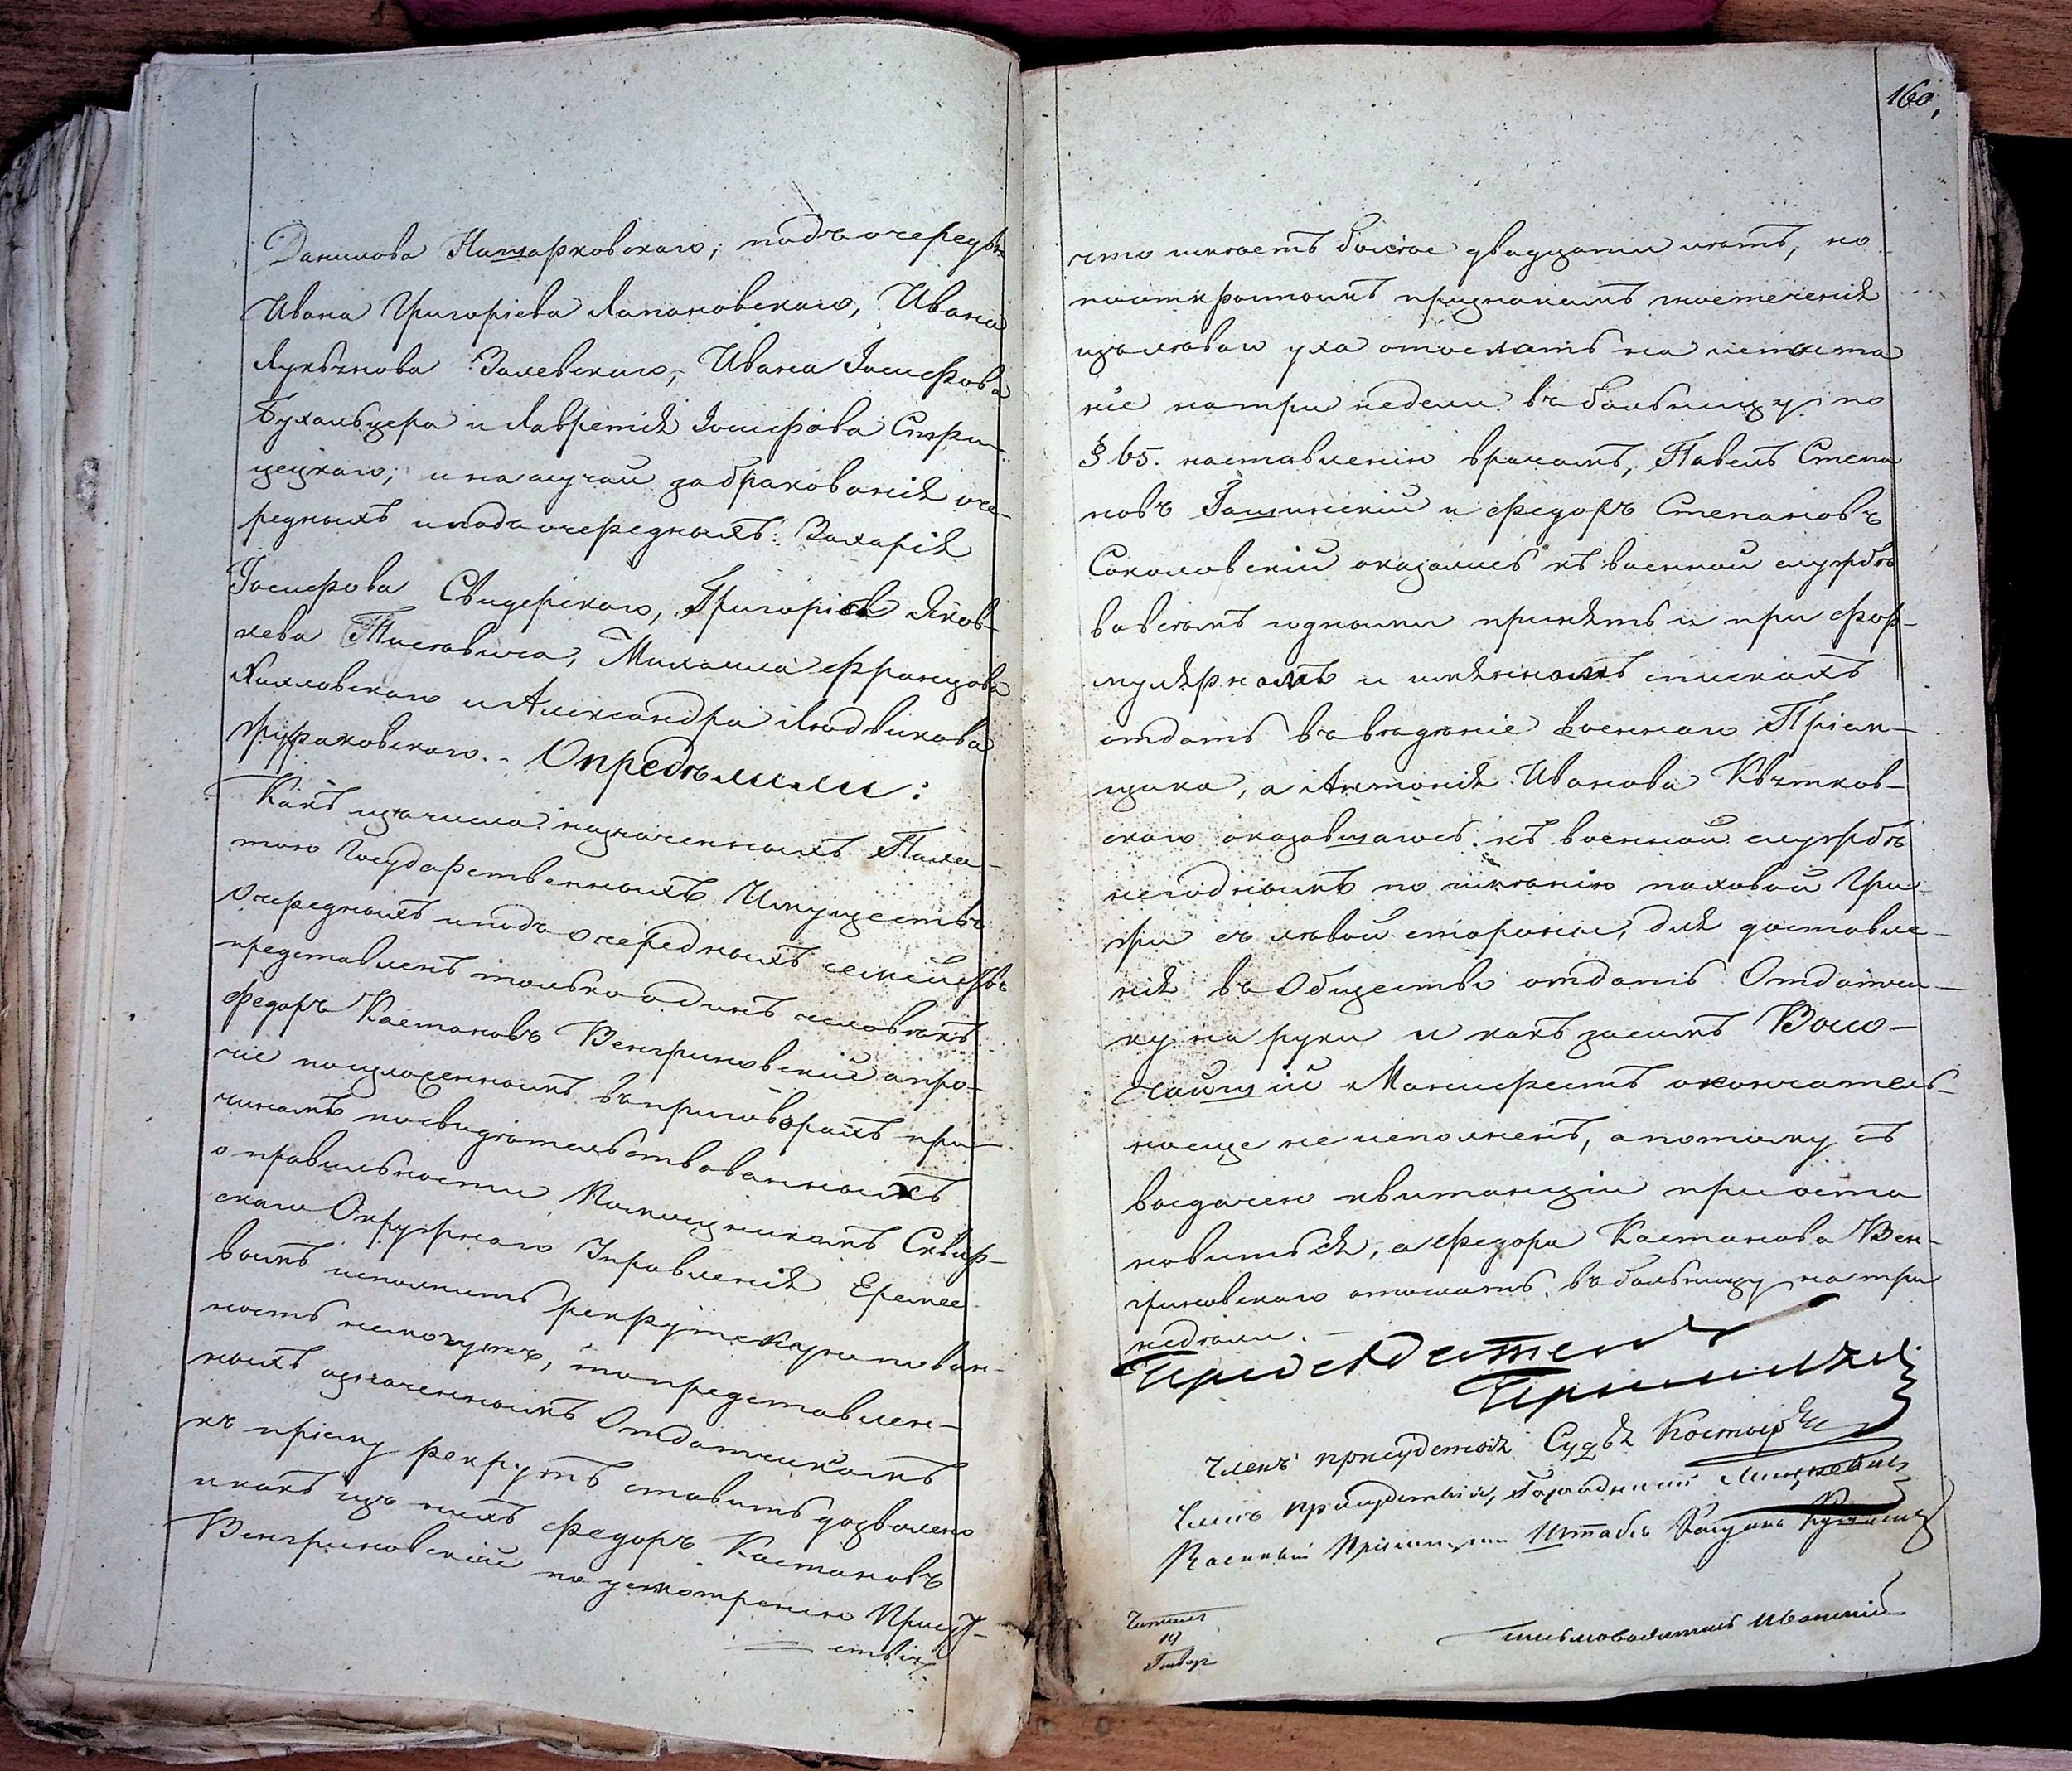 Данилова Нашарковскаго; подъочередн:
Ивана Григоріева Лапановскаго, Ивана
Лукьянова Залевскаго, Ивана Іосифова
Бухальцера и Лаврентія Іосифова
и на случай забракованія оче-
редныхъ и подъочередныхъ: Захарія
Іосифова Свидерскаго, Григорія Яков-
лева Михаила Францова
Хилловскаго и Александра Людвикова
Опредѣлили:
Какъ изъ числа назначенныхъ Пала-
тою Государственныхъ Имуществъ
очередныхъ и подъочередныхъ семействъ
представленъ только одинъ человѣкъ
Федоръ Каетановъ Венгриновскій а про-
чіе по изложеннымъ въ приговорахъ при-
чинамъ посвидѣтельствованныхъ
о правильности Помощникомъ Сквир-
скаго Окружнаго Управленія Еремее-
вымъ исполнить рекрутскую повин-
ность немогутъ, то представлен-
ныхъ означеннымъ Отдатчикомъ
къ пріему рекрутъ ставить дозволено
и какъ изъ нихъ Федоръ Каетановъ
Венгриновскій по усмотренію Присут-
ствія
160.
что имѣетъ болѣе двадцати лѣтъ, но
пооткрытымъ признакамъ течения
изълѣваго уха отослать на испыта
ніе на три недели въ больницу по
§ 65. наставленію врачамъ, Павелъ Степа
новъ Яшинскій и Федоръ Степановъ
Соколовскій оказались къ военной службѣ
вовсемъ годными принять и при фор-
мулярномъ и имянномъ спискахъ
отдать въ вѣдѣніе военнаго Пріем-
щика, а Антонія Иванова Квятков-
скаго оказавшагось къ военной службѣ
негоднымъ по имѣнію паховой Гры-
жи съ лѣвой стороны, для доставле-
нія въ Общество отдать Отдатчи-
ку на руки и какъ засимъ Высо-
чайшій Манифестъ окончатель-
но еще не исполненъ, а потому съ
выдачею квитанціи пріоста
новиться, а Федора Каетанова Вен-
гриновскаго отослать въ больницу на три
недѣли. -
Предсѣдатель
Членъ присудствія Судья
Членъ присудствія, Городничий Мицкевичъ
Военный Пріемщикъ Штабсъ
Читалъ
письмоводитель Иванскій